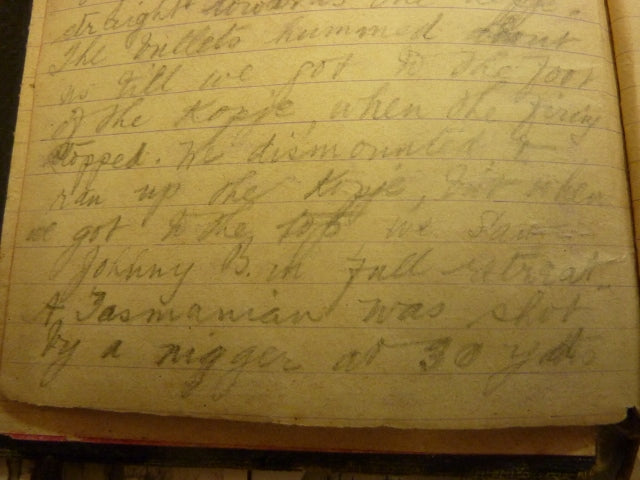 straight towards the Kopje.
The bullets hummed about
us till we got to the foot
of the Kopje, when the firing
stopped. We dismounted, &
ran up the Kopje, but when
we got to the top we saw
Johnny B. in full retreat.
A Tasmanian was shot
by a nigger at 30 yds